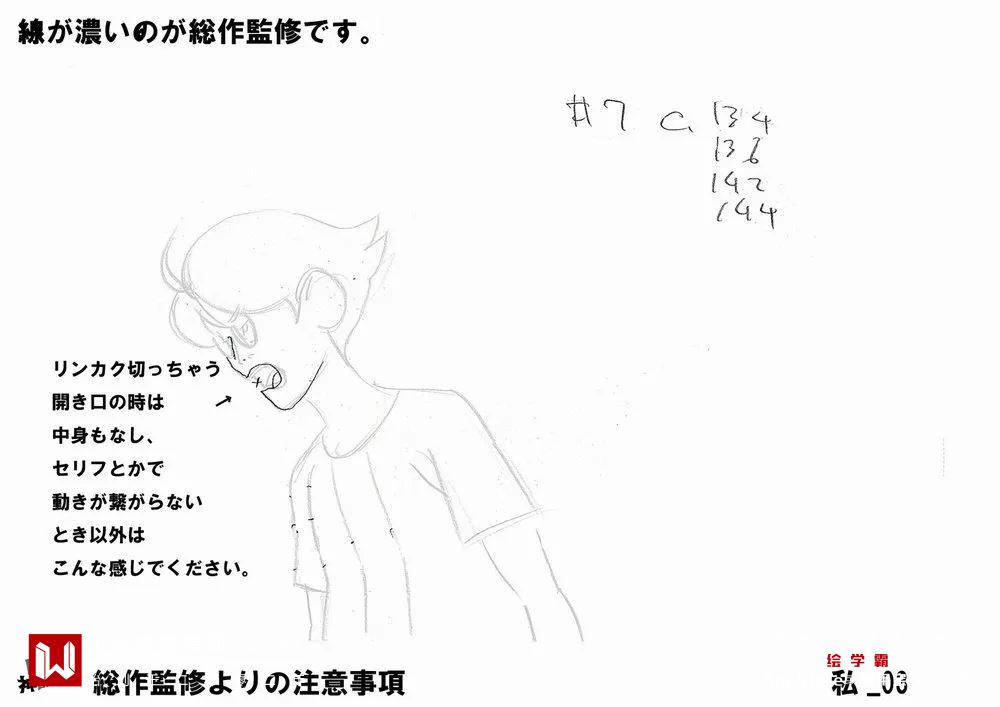 線が濃いのが総作監修です。
#7 C. 134
136
142
144
リンカク切っちゃう
開き口の時は
中身もなし、
セリフとかで
動きが繋がらない
とき以外は
こんな感じでください。
絵学霸
総作監修よりの注意事項
私_03